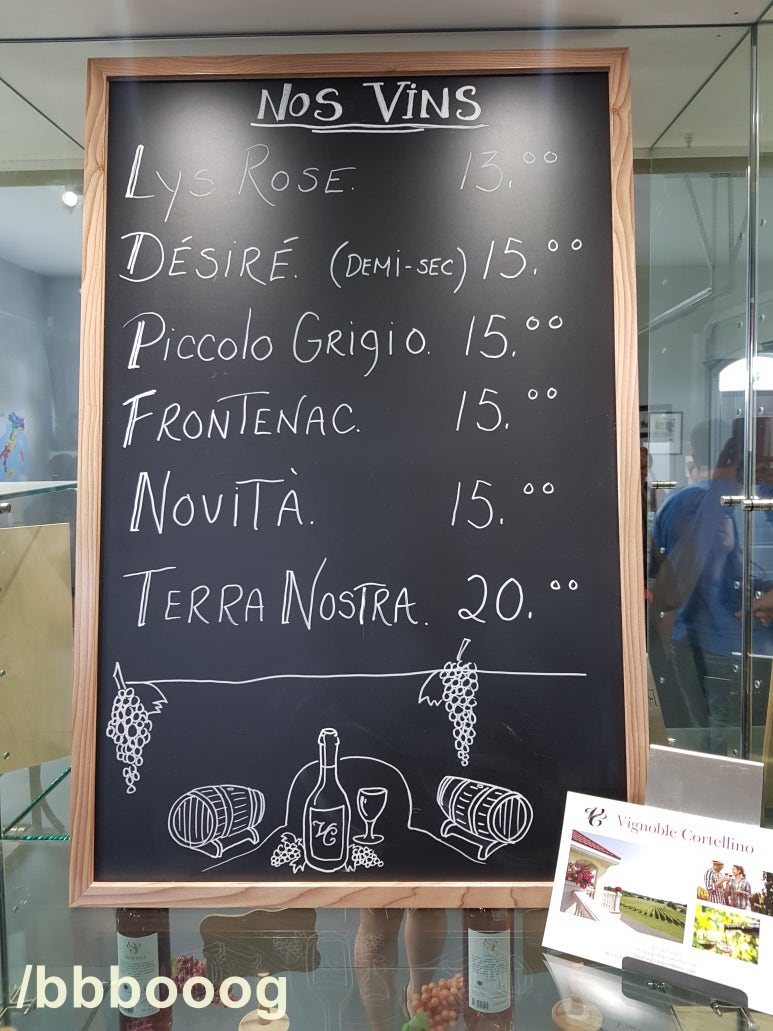 NOS VINS
LYS ROSE. 13.00
DÉSIRÉ. (DEMI-SEC) 15.00
PICCOLO GRIGIO. 15.00
FRONTENAC. 15.00
NOVITÀ. 15.00
TERRA NOSTRA. 20.00
VC
VC Vignoble Cortellino
/bbbooog